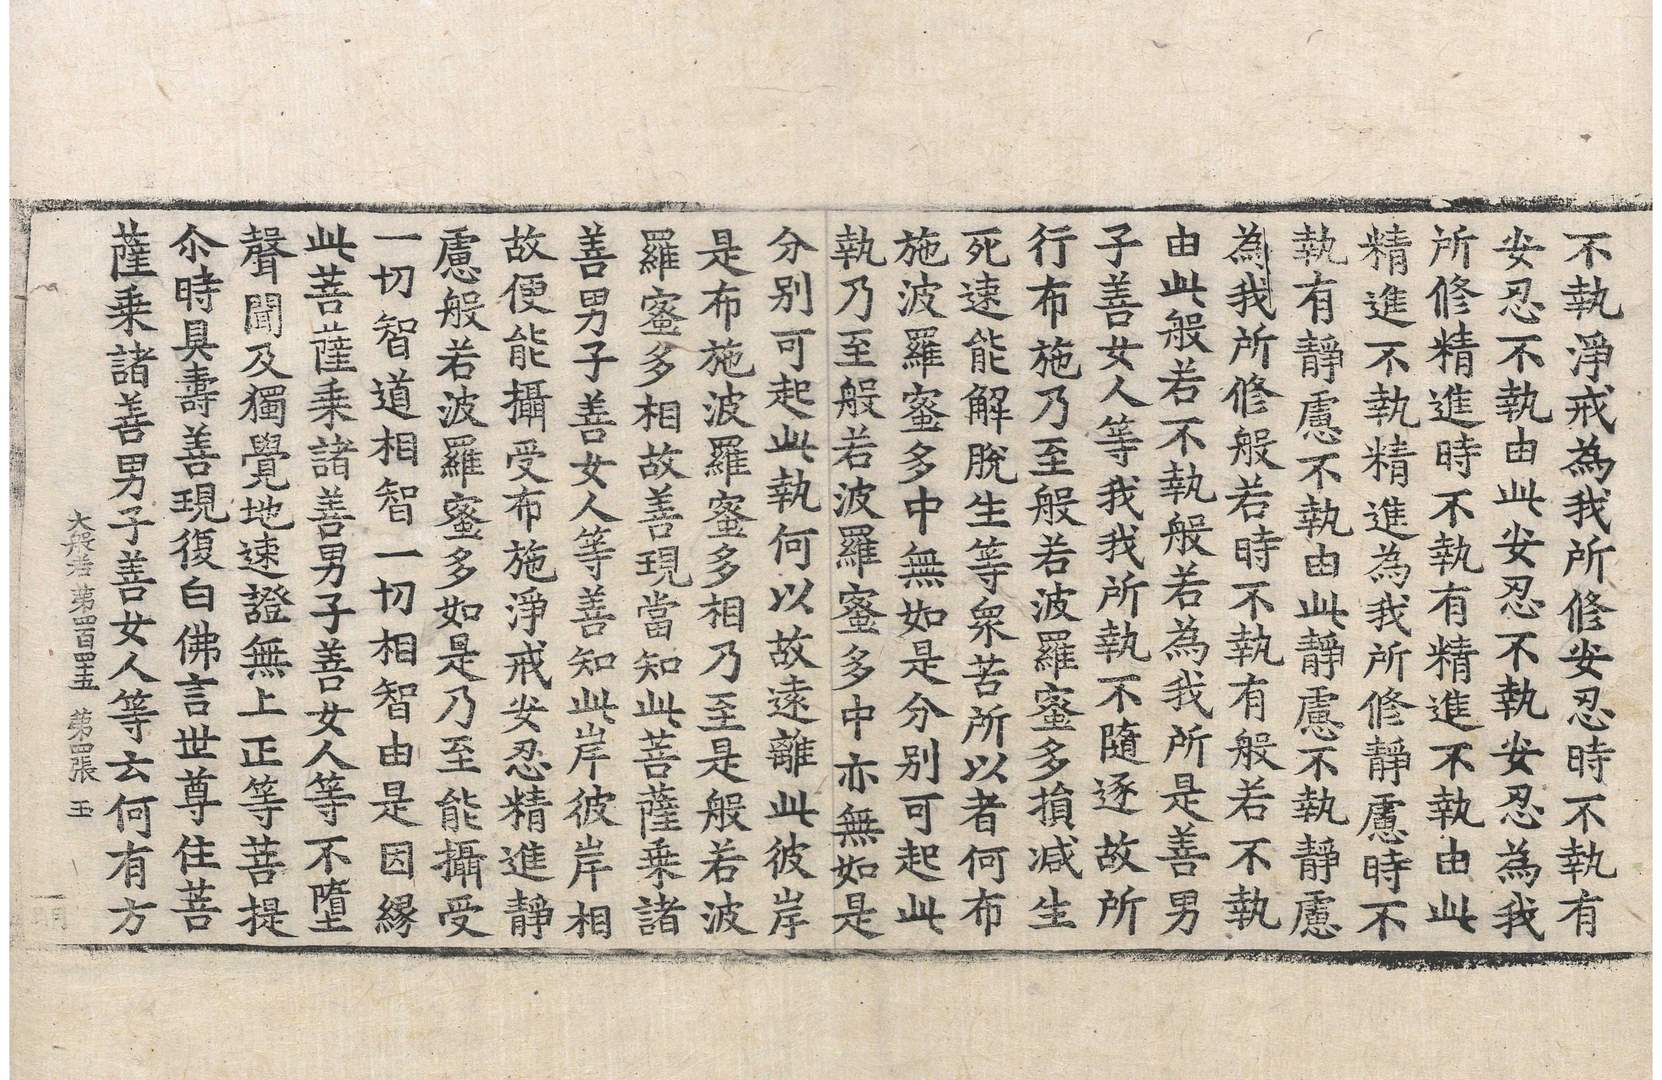 不執淨戒為我所修安忍時不執有
安忍不執由此安忍不執安忍為我
所修精進時不執有精進不執由此
精進不執精進為我所修靜慮時不
執有靜慮不執由此靜慮不執靜慮
為我所修般若時不執有般若不執
由此般若不執般若為我所是善男
子善女人等我我所執不隨逐故所
行布施乃至般若波羅蜜多損減生
死速能解脫生等衆苦所以者何布
施波羅蜜多中無如是分別可起此
執乃至般若波羅蜜多中亦無如是
分別可起此執何以故遠離此彼岸
是布施波羅蜜多相乃至是般若波
羅蜜多相故善現當知此菩薩乗諸
善男子善女人等善知此岸彼岸相
故便能攝受布施淨戒安忍精進靜
慮般若波羅蜜多如是乃至能攝受
一切智道相智一切相智由是因緣
此菩薩乗諸善男子善女人等不墮
聲聞及獨覺地速證無上正等菩提
尒時具壽善現復白佛言世尊住菩
薩乗諸善男子善女人等云何有方
大般若 第四百四十五 第四張 玉